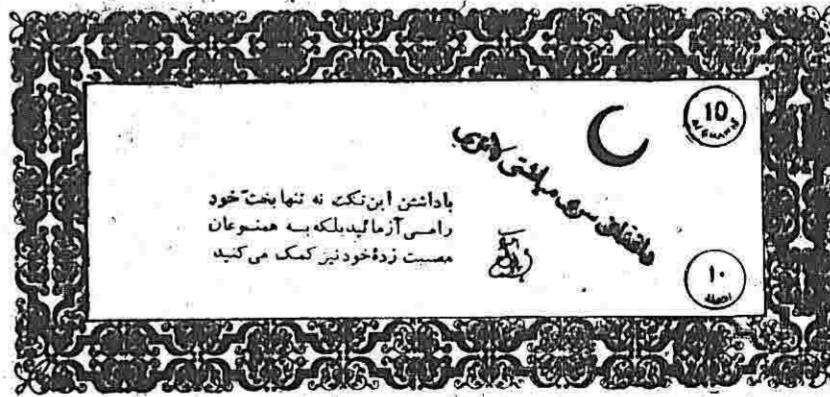 10
AFGHANI
دافغانی سری میاشتی لاتری
باداشتن این تکت نه تنها بخت خود
رامی آزمائید بلکه به همنوعان
مصیبت زدهٔ خود نیز کمک می کنید
۱۰